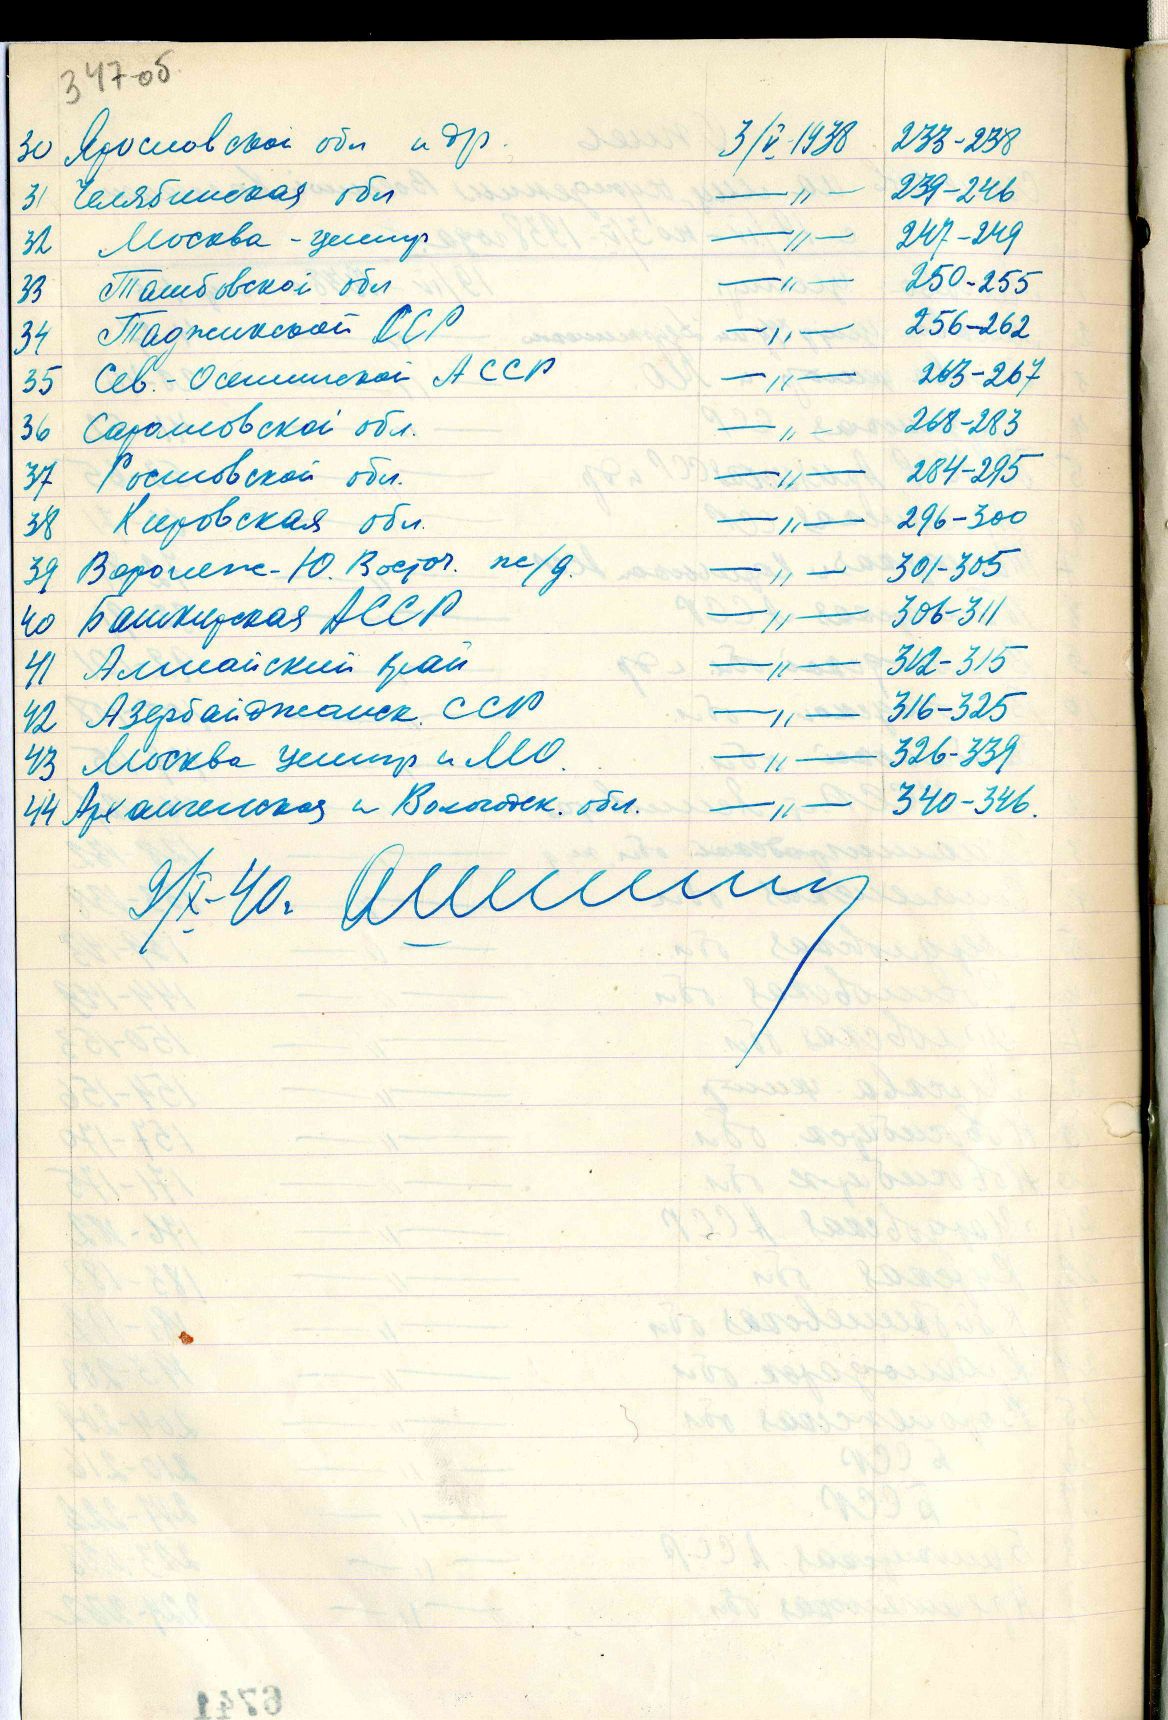 347-об
30 Ярославской обл и др. 3/V-1938 233-238
31 Челябинская обл —„— 239-246
32 Москва - центр —„— 247-249
33 Тамбовской обл —„— 250-255
34 Таджикской ССР —„— 256-262
35 Сев.-Осетинской АССР —„— 263-267
36 Саратовской обл. —„— 268-283
37 Ростовской обл. —„— 284-295
38 Кировская обл. —„— 296-300
39 Воронеж-Ю. Восточ. ж/д. —„— 301-305
40 Башкирская АССР —„— 306-311
41 Алтайский край —„— 312-315
42 Азербайджанск. ССР —„— 316-325
43 Москва центр и МО. —„— 326-339
44 Архангельская и Вологодск. обл. —„— 340-346.
9/X-40г.
6741